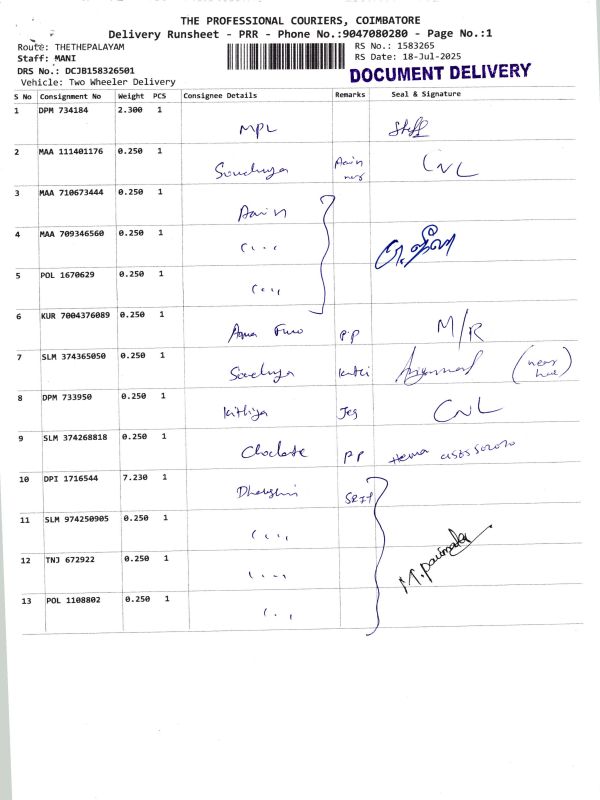 THE PROFESSIONAL COURIERS, COIMBATORE
Delivery Runsheet - PRR - Phone No.:9047080280 - Page No.:1
Route: THETHEPALAYAM
RS No.: 1583265
Staff: MANI
RS Date: 18-Jul-2025
DRS No.: DCJB158326501
DOCUMENT DELIVERY
Vehicle: Two Wheeler Delivery
S No Consignment No Weight PCS Consignee Details Remarks Seal & Signature
1 DPM 734184 2.300 1 MPL Staff
2 MAA 111401176 0.250 1 CNL
3 MAA 710673444 0.250 1
4 MAA 709346560 0.250 1
5 POL 1670629 0.250 1
6 KUR 7004376089 0.250 1 PP M/R
7 SLM 374365050 0.250 1
8 DPM 733950 0.250 1 Kithiya CNL
9 SLM 374268818 0.250 1 Choclate PP Hema
10 DPI 1716544 7.230 1 Dharshini
11 SLM 974250905 0.250 1
12 TNJ 672922 0.250 1
13 POL 1108802 0.250 1